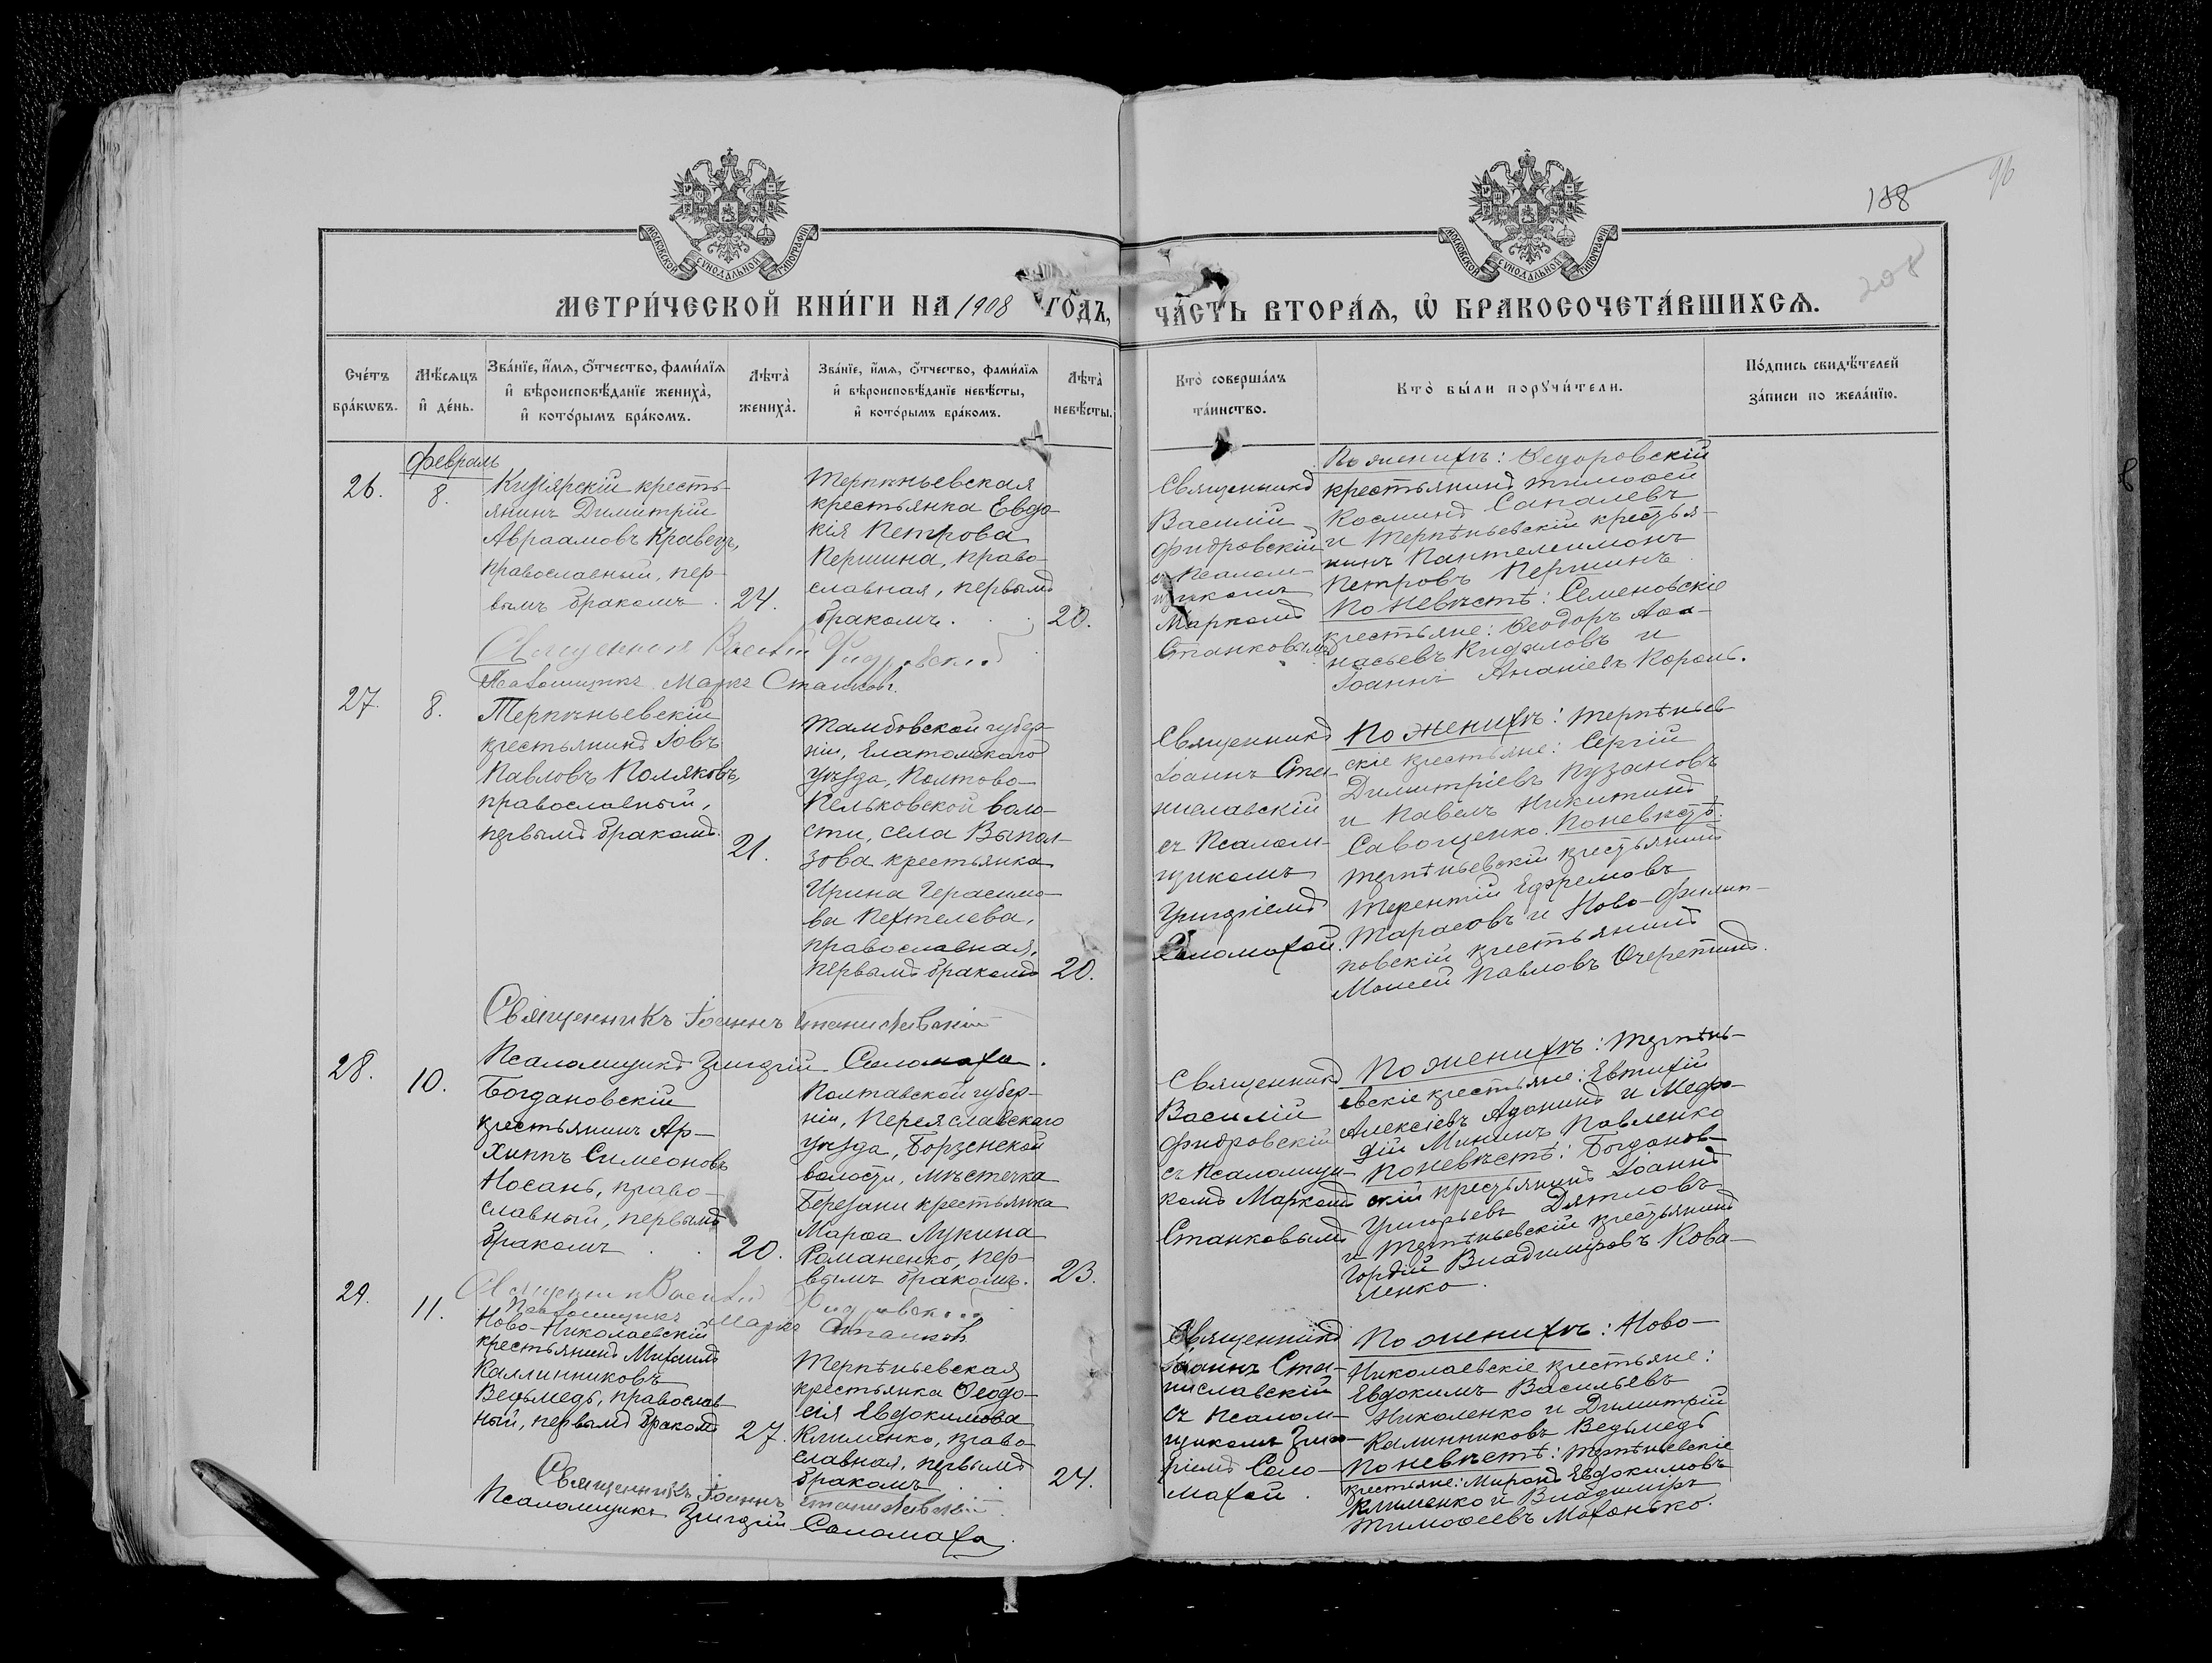 188
96
208
МОСКОВСКОЙ СУНОДАЛЬНОЙ ТИПОГРАФІИ
МОСКОВСКОЙ СУНОДАЛЬНОЙ ТИПОГРАФІИ
МЕТРИ́ЧЕСКОЙ КНИ́ГИ НА 1908 ГО́ДЪ,
ЧА́СТЬ ВТОРА́Ѧ, Ѡ҆ БРАКОСОЧЕТА́ВШИХСѦ.
Сче́тъ бра́кѡвъ.
Мѣ́сѧцъ и҆ де́нь.
Зва́нїе, и҆́мѧ, ѻ҆́тчество, фами́лїѧ
и҆ вѣроисповѣ́данїе жениха̀,
и҆ кото́рымъ бра́комъ.
Лѣта̀ жениха̀.
Зва́нїе, и҆́мѧ, ѻ҆́тчество, фами́лїѧ
и҆ вѣроисповѣ́данїе невѣ́сты,
и҆ кото́рымъ бра́комъ.
Лѣта̀ невѣ́сты.
Кто̀ соверша́лъ
та́инство.
Кто̀ бы́ли порꙋчи́тели.
По́дпись свидѣ́телей
за́писи по жела́нїю.
февраль
26.
8.
кресть-
янинъ Димитрій
Авраамовъ Кравецъ,
православный, пер-
вымъ бракомъ.
24.
Терпѣньевская
крестьянка Евдо-
кія Петрова
Першина, право-
славная, первымъ
бракомъ.
20.
Священникъ
Василій
Фидровскій
съ Псалом-
щикомъ
Маркомъ
Станковымъ
По женихѣ: Ѳедоровскій
крестьянинъ Тимоѳей
Косминъ Сапалевъ
и Терпѣньевскій крестья-
нинъ Пантелеимонъ
Петровъ Першинъ.
По невѣстѣ: Семеновскіе
крестьяне: Ѳеодоръ Аѳа-
насьевъ Кидаловъ и
Іоаннъ Ананіевъ Король.
Священникъ Василій Фидровский
Псаломщикъ Маркъ Станковъ.
27.
8.
Терпѣньевскій
крестьянинъ Іовъ
Павловъ Поляковъ,
православный,
первымъ бракомъ.
21.
Тамбовской губер-
ніи, Елатомскаго
уѣзда, Полтово-
Пеньковской воло-
сти, села Выпол-
зова крестьянка
Ирина Герасимо-
ва Пехтелева,
православная,
первымъ бракомъ
20.
Священникъ
Іоаннъ Ста-
ниславскій
съ Псалом-
щикомъ
Григоріемъ
Саломахой.
По женихѣ: Терпѣньев-
скіе крестьяне: Сергій
Димитріевъ Пузановъ
и Павелъ Никитинъ
Савощенко. По невѣстѣ:
Терпѣньевскій крестьянинъ
Терентій Ефремовъ
Тарасовъ и Ново-Филип-
повскій крестьянинъ
Моисей Павловъ Очеретинъ.
Священникъ Іоаннъ Станиславскій
Псаломщикъ Григорій Саломаха.
28.
10.
Богдановскій
крестьянинъ Ар-
хиппъ Симеоновъ
Носань, право-
славный, первымъ
бракомъ
20.
Полтавской губер-
ніи, Переяславскаго
уѣзда,
волости, мѣстечка
Березани крестьянка
Марѳа Лукина
Романенко, пер-
вымъ бракомъ.
23.
Священникъ
Василій
Фидровскій
съ Псаломщи-
комъ Маркомъ
Станковымъ
По женихѣ: Терпѣнь-
евскіе крестьяне: Евтихій
Алексіевъ Адонинъ и Меѳо-
дій Мининъ Павленко
По невѣстѣ: Богданов-
скій крестьянинъ Іоаннъ
Григорьевъ Дятловъ
и Терпѣньевскій крестьянинъ
Гордій Владимировъ Кова-
ленко.
Священникъ Василій Фидровский
Псаломщикъ Маркъ Станковъ
29.
11.
Ново-Николаевскій
крестьянинъ Михаилъ
Каллинниковъ
Ведьмедь, православ-
ный, первымъ бракомъ
27.
Терпѣньевская
крестьянка Ѳеодо-
сія Евдокимова
Клименко, право-
славная, первымъ
бракомъ
24.
Священникъ
Іоаннъ Ста-
ниславскій
съ Псалом-
щикомъ Григо-
ріемъ Сало-
махой.
По женихѣ: Ново-
Николаевскіе крестьяне:
Евдокимъ Васильевъ
Николенко и Димитрій
Калинниковъ Ведьмедь
По невѣстѣ: Терпѣньевскіе
крестьяне: Миронъ Евдокимовъ
Клименко и Владиміръ
Тимоѳеевъ Мохонько.
Священникъ Іоаннъ Станиславскій
Псаломщикъ Григорій Саломаха